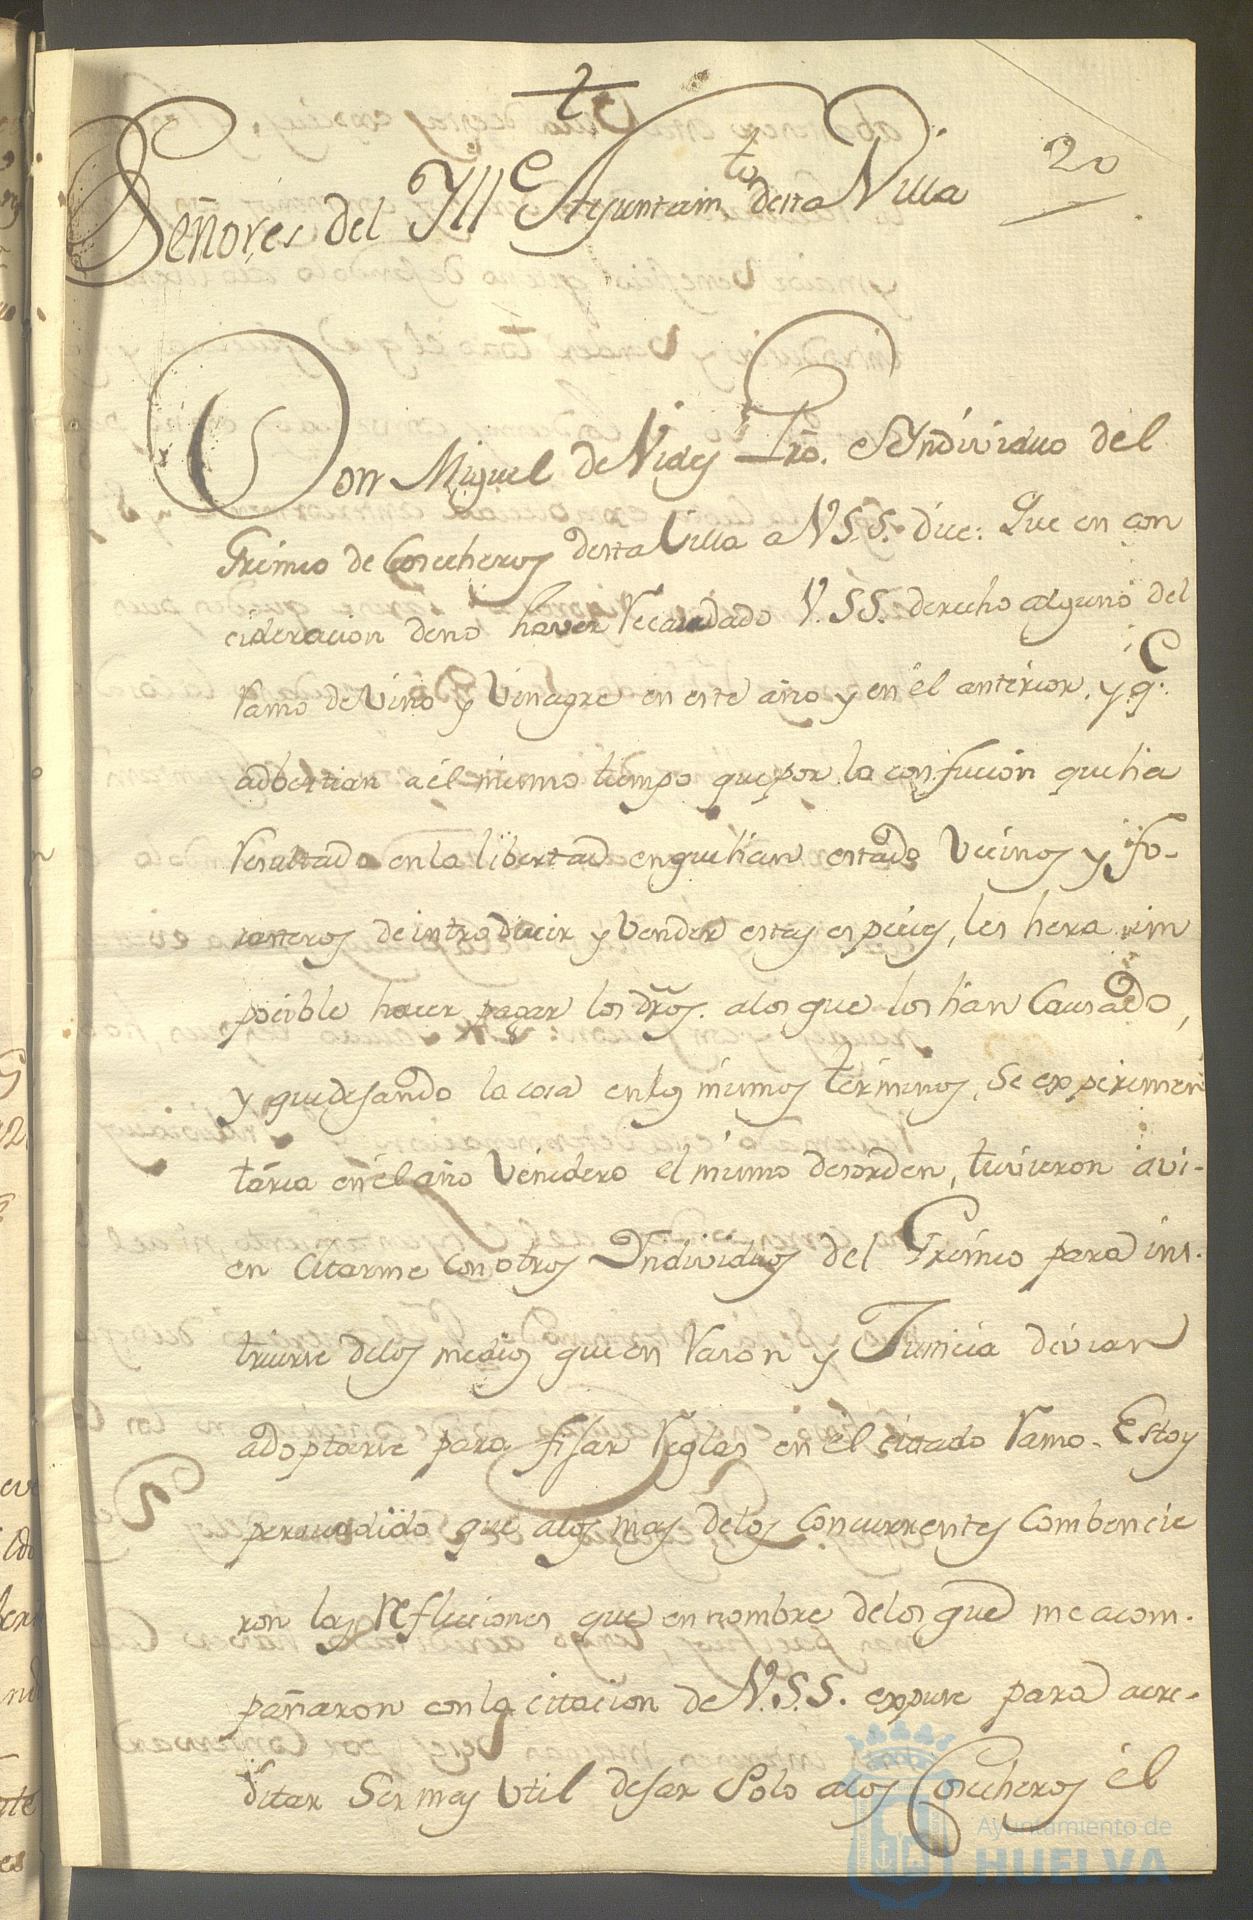 20
Señores del Yll.e Ayuntam.to desta Villa
Don Miguel de Vides Pro. è Yndividuo del
Gremio de Cosecheros desta Villa a V.S.S. dice: Que en con
cideracion deno haver Recaudado V.SS. derecho alguno del
Ramo de Vino y Vinagre en este año y en èl anterior, y q.e
adbertian a èl mismo tiempo que por la confucion que ha
Resultado en la libertad en que han estado Vecinos y fo-
rasteros de introducir y vender estas especies, les hera im
pocible hacer pagar los dros. a los que los han Causado,
y que dejando la cosa en los mismos terminos, se experimen
taria en èl año Venidero el mismo desorden, tuvieron a vi-
en Citarme con otros Yndividuos del Gremio para ins-
truirse delos medios que en Rason y Justicia devian
adoptarse para fijar Reglas en èl citado Ramo. Estoy
persuadido que a los mas delos concurrentes combencie
ron las Reflecciones que en nombre de los que me acom-
pañaron con la citacion de V.S.S. expuse para acre-
ditar Ser mas Util dejar Solo a los Cosecheros èl
Ayuntamiento de
HUELVA